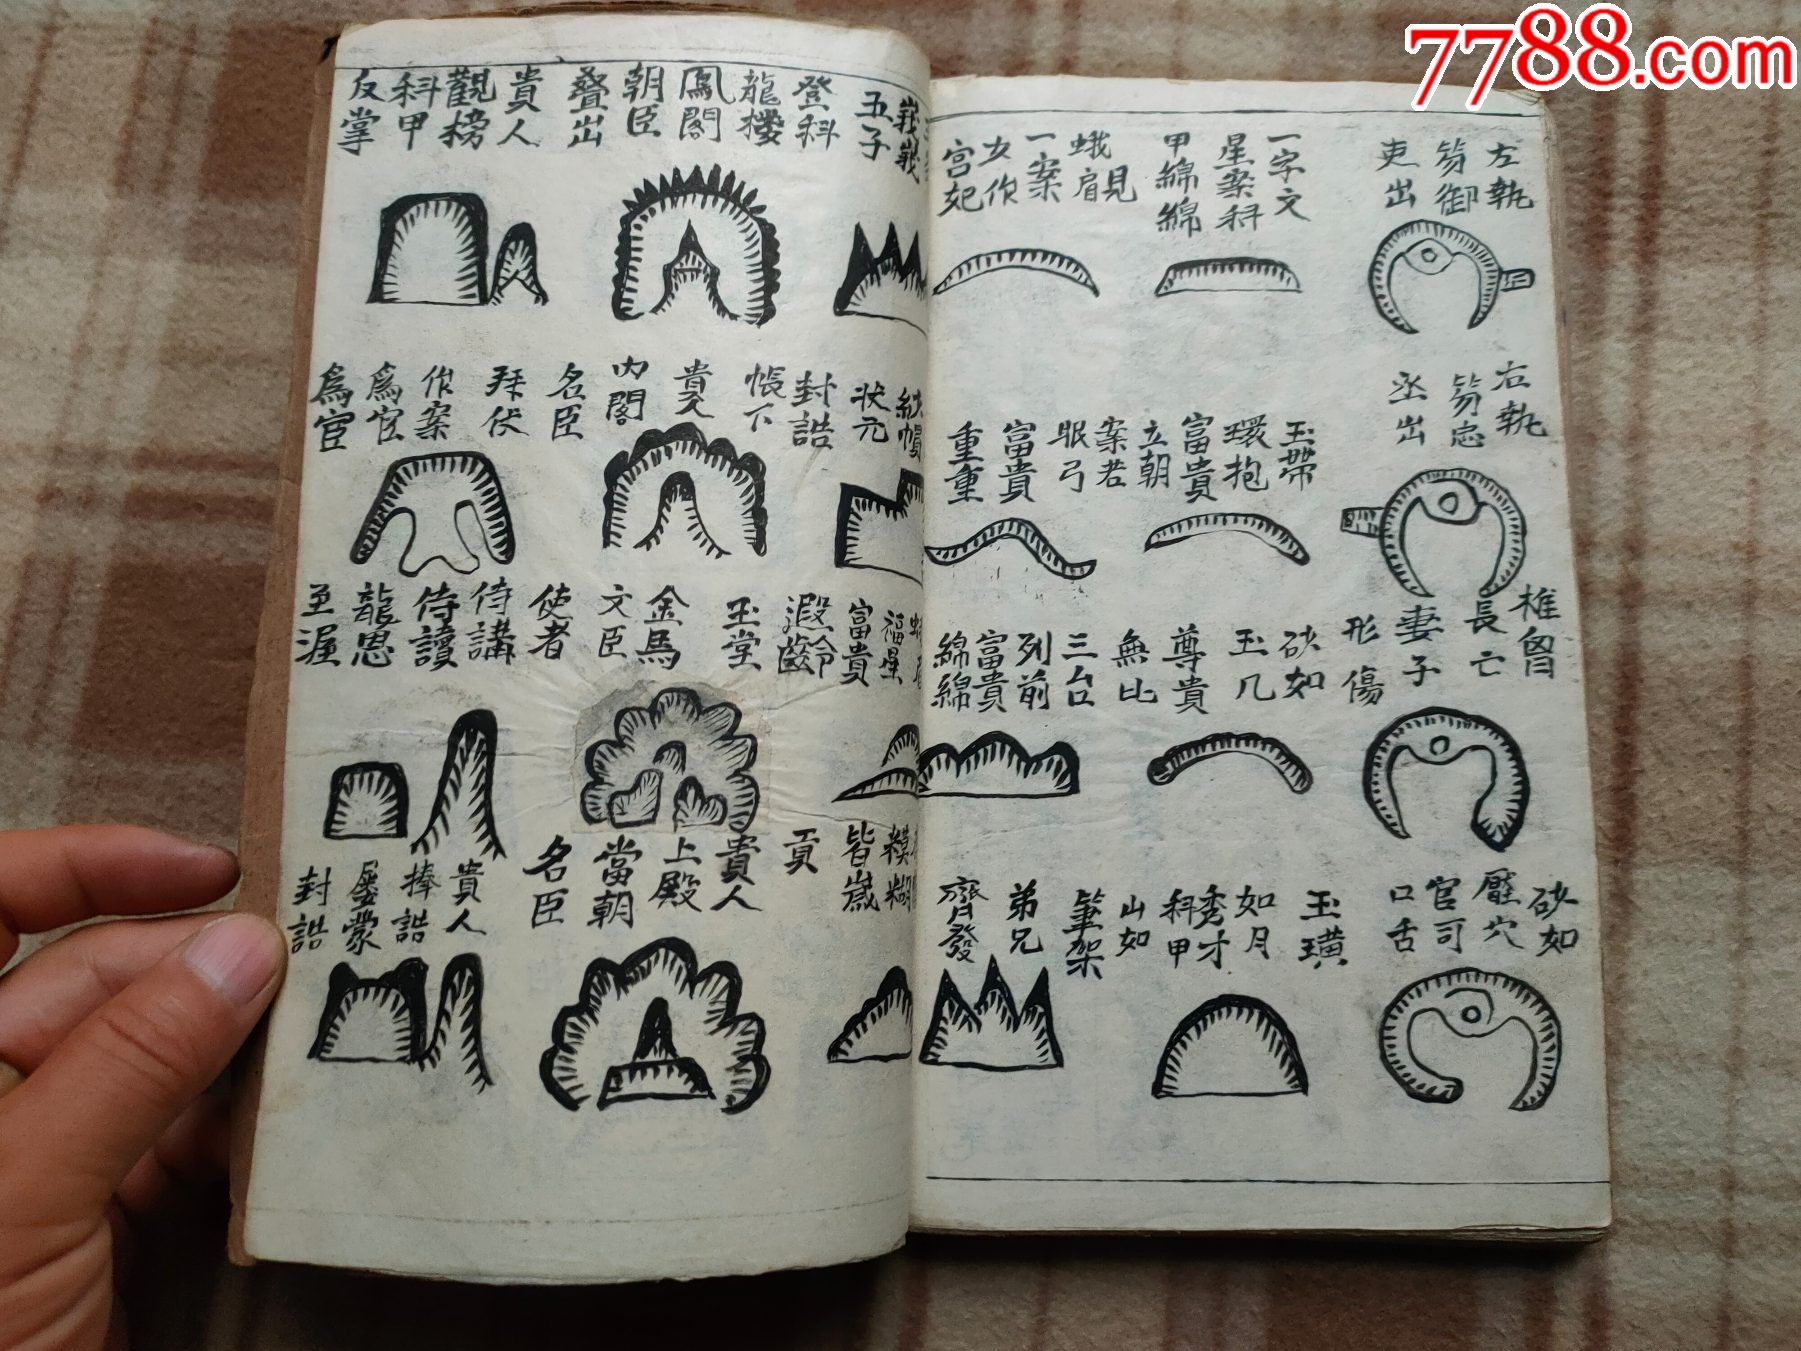 7788.com
左執
笏御
吏出
一字文
星案科
甲綿綿
蛾眉見
一案
女作
宮妃
右執
笏忠
丞出
玉帶
環抱
富貴
立朝
案若
眠弓
富貴
重重
椎胷
長亡
妻子
形傷
砂如
玉几
尊貴
無比
三台
列前
富貴
綿綿
砂如
壓穴
官司
口舌
玉璜
如月
秀才
科甲
山如
筆架
弟兄
齊發
峩峩
五子
登科
龍樓
鳳閣
朝臣
疊出
貴人
觀榜
科甲
反掌
帽
状元
封誥
帳下
貴人
內閣
名臣
拜伏
作案
為官
為宦
福星
富貴
遐齡
玉堂
金馬
文臣
使者
侍講
侍讀
龍恩
至渥
模糊
皆歲
貢
貴人
上殿
當朝
名臣
貴人
捧誥
屢蒙
封誥